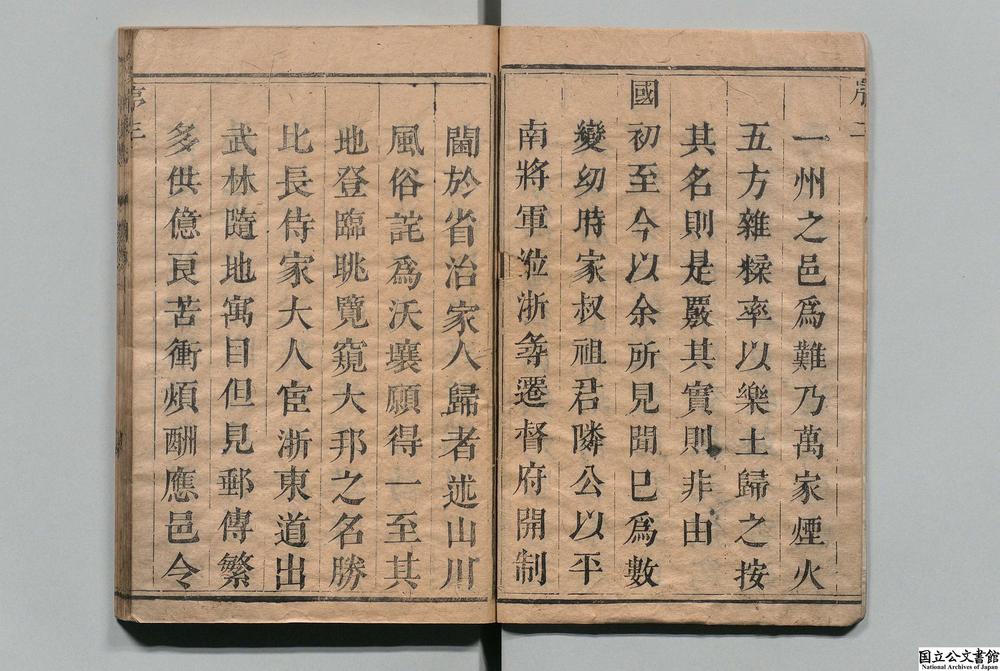 序二
一州之邑爲難乃萬家煙火
五方雜糅率以樂土歸之按
其名則是覈其實則非由
國初至今以余所見聞已爲數
變幼時家叔祖君隣公以平
南將軍涖浙尋遷督府開制
閫於省治家人歸者述山川
風俗詫爲沃壤願得一至其
地登臨眺覽窺大邦之名勝
比長侍家大人宦浙東道出
武林隨地寓目但見郵傳繁
多供億良苦衝煩酬應邑令
序三
国立公文書館
National Archives of Japan